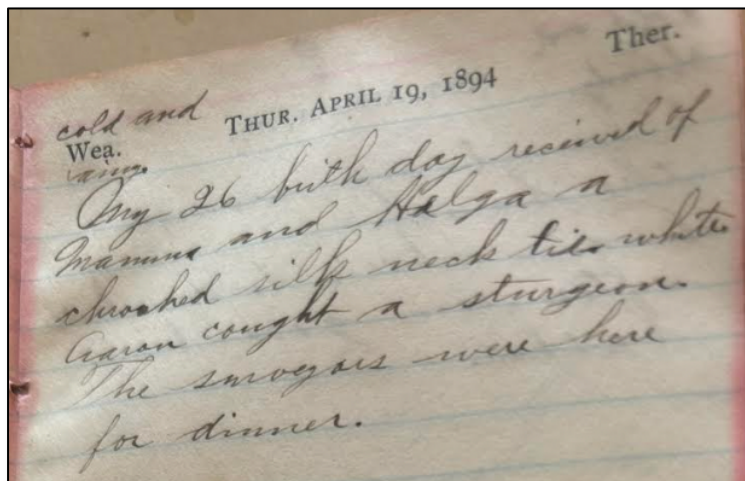 Ther.
cold and
THUR. APRIL 19, 1894
Wea.
rainy.
My 26 birth day received of
Mamma and Helga a
chroched silk neck tie. white
Aaron caught a sturgeon.
The surveyors were here
for dinner.